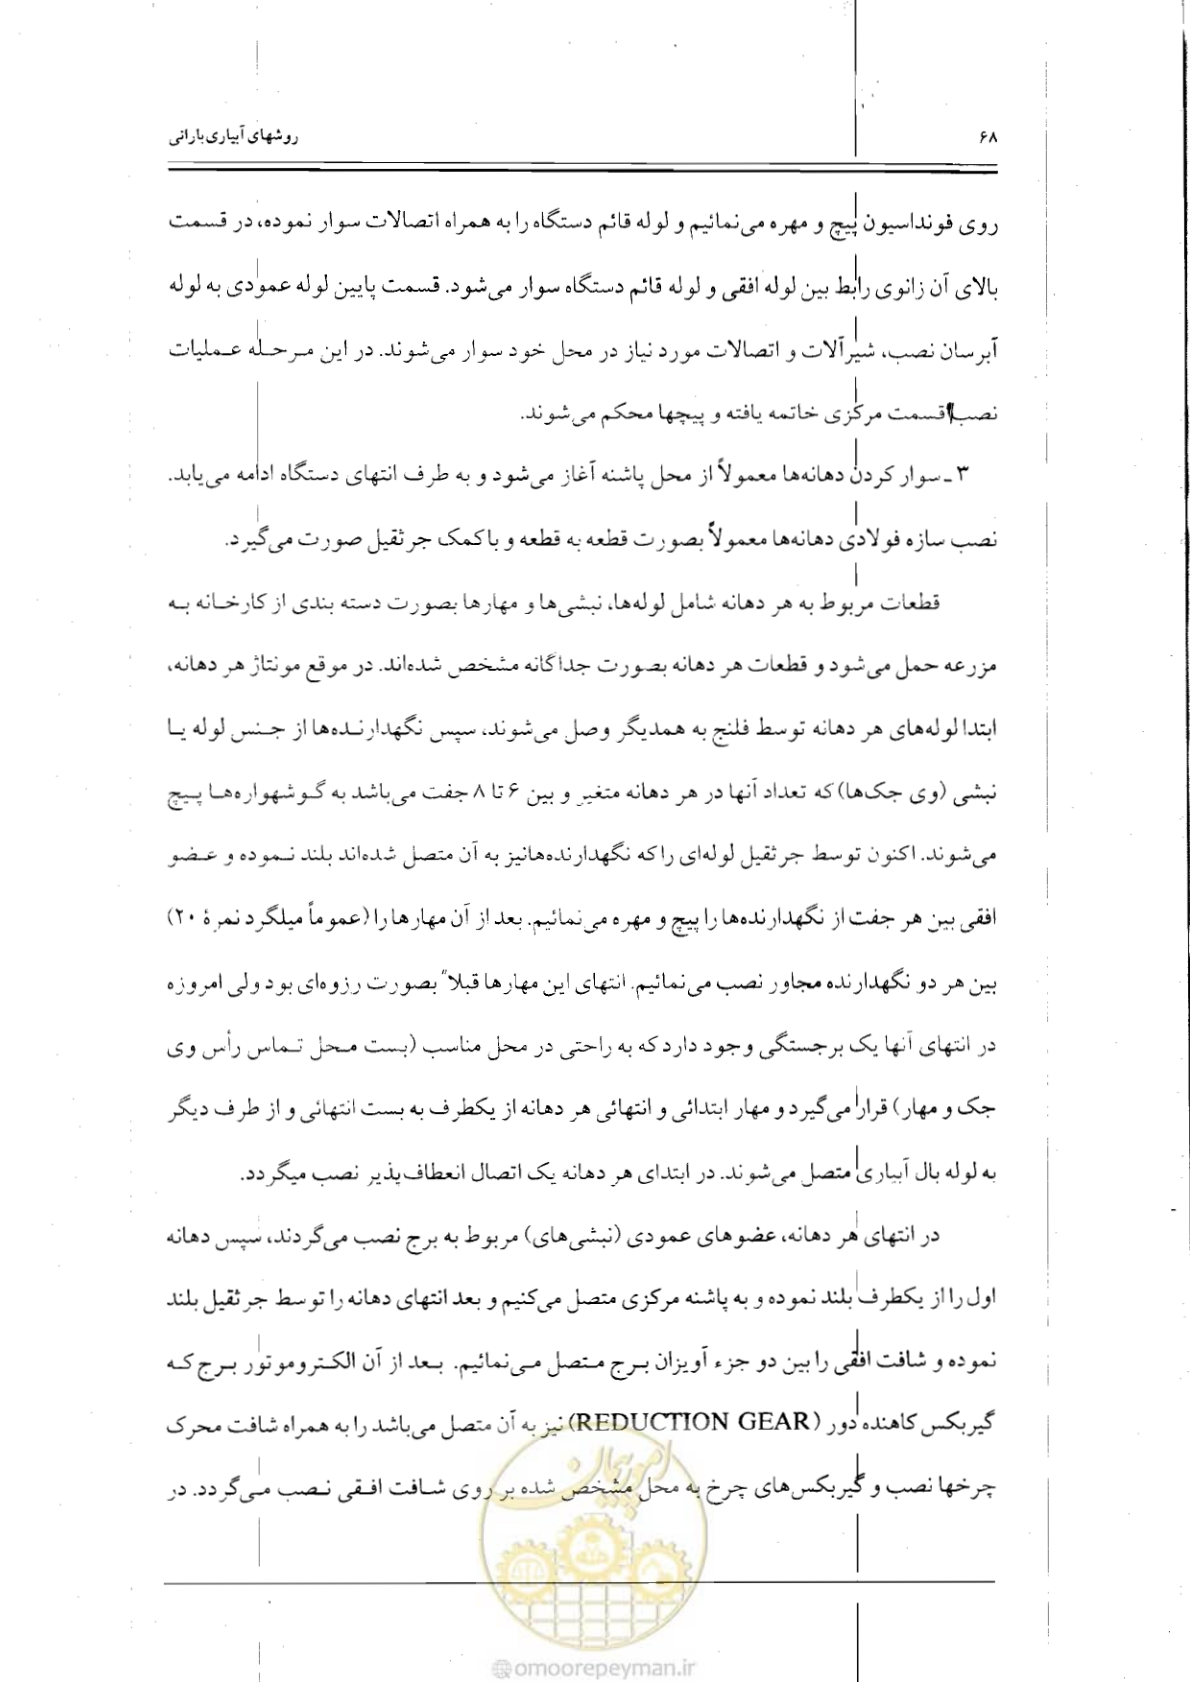 روشهای آبیاری بارانی
۶۸
روی فونداسیون پیچ و مهره می‌نمائیم و لوله قائم دستگاه را به همراه اتصالات سوار نموده، در قسمت
بالای آن زانوی رابط بین لوله افقی و لوله قائم دستگاه سوار می‌شود. قسمت پایین لوله عمودی به لوله
آبرسان نصب، شیرآلات و اتصالات مورد نیاز در محل خود سوار می‌شوند. در این مرحله عملیات
نصب قسمت مرکزی خاتمه یافته و پیچها محکم می‌شوند.
۳ ـ سوار کردن دهانه‌ها معمولاً از محل پاشنه آغاز می‌شود و به طرف انتهای دستگاه ادامه می‌یابد.
نصب سازه فولادی دهانه‌ها معمولاً بصورت قطعه به قطعه و با کمک جرثقیل صورت می‌گیرد.
قطعات مربوط به هر دهانه شامل لوله‌ها، نبشی‌ها و مهارها بصورت دسته بندی از کارخانه به
مزرعه حمل می‌شود و قطعات هر دهانه بصورت جداگانه مشخص شده‌اند. در موقع مونتاژ هر دهانه،
ابتدا لوله‌های هر دهانه توسط فلنج به همدیگر وصل می‌شوند، سپس نگهدارنده‌ها از جنس لوله یا
نبشی (وی جک‌ها) که تعداد آنها در هر دهانه متغیر و بین ۶ تا ۸ جفت می‌باشد به گوشهواره‌ها پیچ
می‌شوند. اکنون توسط جرثقیل لوله‌ای را که نگهدارنده‌هانیز به آن متصل شده‌اند بلند نموده و عضو
افقی بین هر جفت از نگهدارنده‌ها را پیچ و مهره می‌نمائیم. بعد از آن مهارها را (عموماً میلگرد نمرهٔ ۲۰)
بین هر دو نگهدارنده مجاور نصب می‌نمائیم. انتهای این مهارها قبلا" بصورت رزوه‌ای بود ولی امروزه
در انتهای آنها یک برجستگی وجود دارد که به راحتی در محل مناسب (بست محل تماس رأس وی
جک و مهار) قرار می‌گیرد و مهار ابتدائی و انتهائی هر دهانه از یکطرف به بست انتهائی و از طرف دیگر
به لوله بال آبیاری متصل می‌شوند. در ابتدای هر دهانه یک اتصال انعطاف‌پذیر نصب میگردد.
در انتهای هر دهانه، عضوهای عمودی (نبشی‌های) مربوط به برج نصب می‌گردند، سپس دهانه
اول را از یکطرف بلند نموده و به پاشنه مرکزی متصل می‌کنیم و بعد انتهای دهانه را توسط جرثقیل بلند
نموده و شافت افقی را بین دو جزء آویزان برج متصل می‌نمائیم. بعد از آن الکتروموتور برج که
گیربکس کاهنده دور (REDUCTION GEAR) نیز به آن متصل می‌باشد را به همراه شافت محرک
چرخها نصب و گیربکس‌های چرخ به محل مشخص شده بر روی شافت افقی نصب می‌گردد. در
امور پیمان
@omoorepeyman.ir